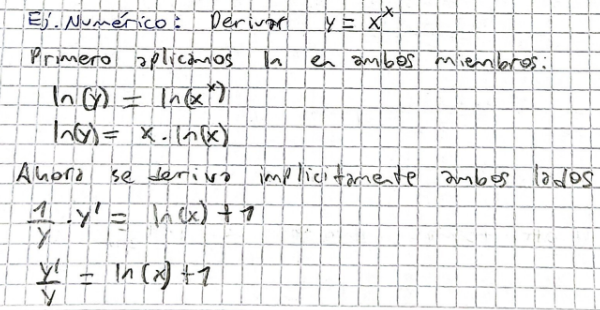 Ej. Numérico: Derivar y = x^x
Primero aplicamos ln en ambos miembros:
ln(y) = ln(x^x)
ln(y) = x . ln(x)
Ahora se deriva implicitamente ambos lados
1/y . y' = ln(x) + 1
y'/y = ln(x) + 1